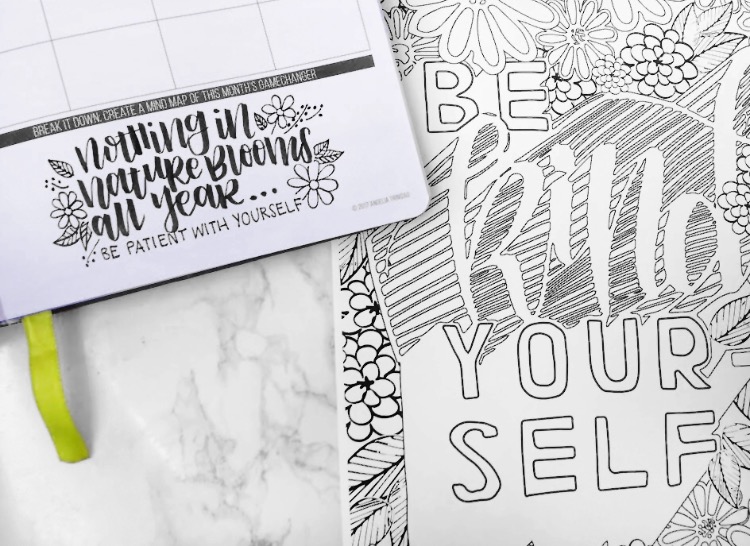 BREAK IT DOWN: CREATE A MIND MAP OF THIS MONTH'S GAMECHANGER
nothing in
nature blooms
all year...
BE PATIENT WITH YOURSELF
BE
kind
YOUR-
SELF